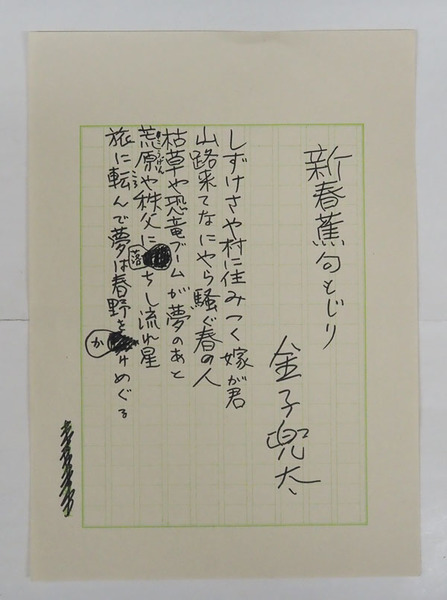 新春蕉句もじり
金子兜太
しずけさや村に住みつく嫁が君
山路来てなにやら騒ぐ春の人
枯草や恐竜ブームが夢のあと
荒原や秩父に落ちし流れ星
ころ
旅に転んで夢は春野をかけめぐる